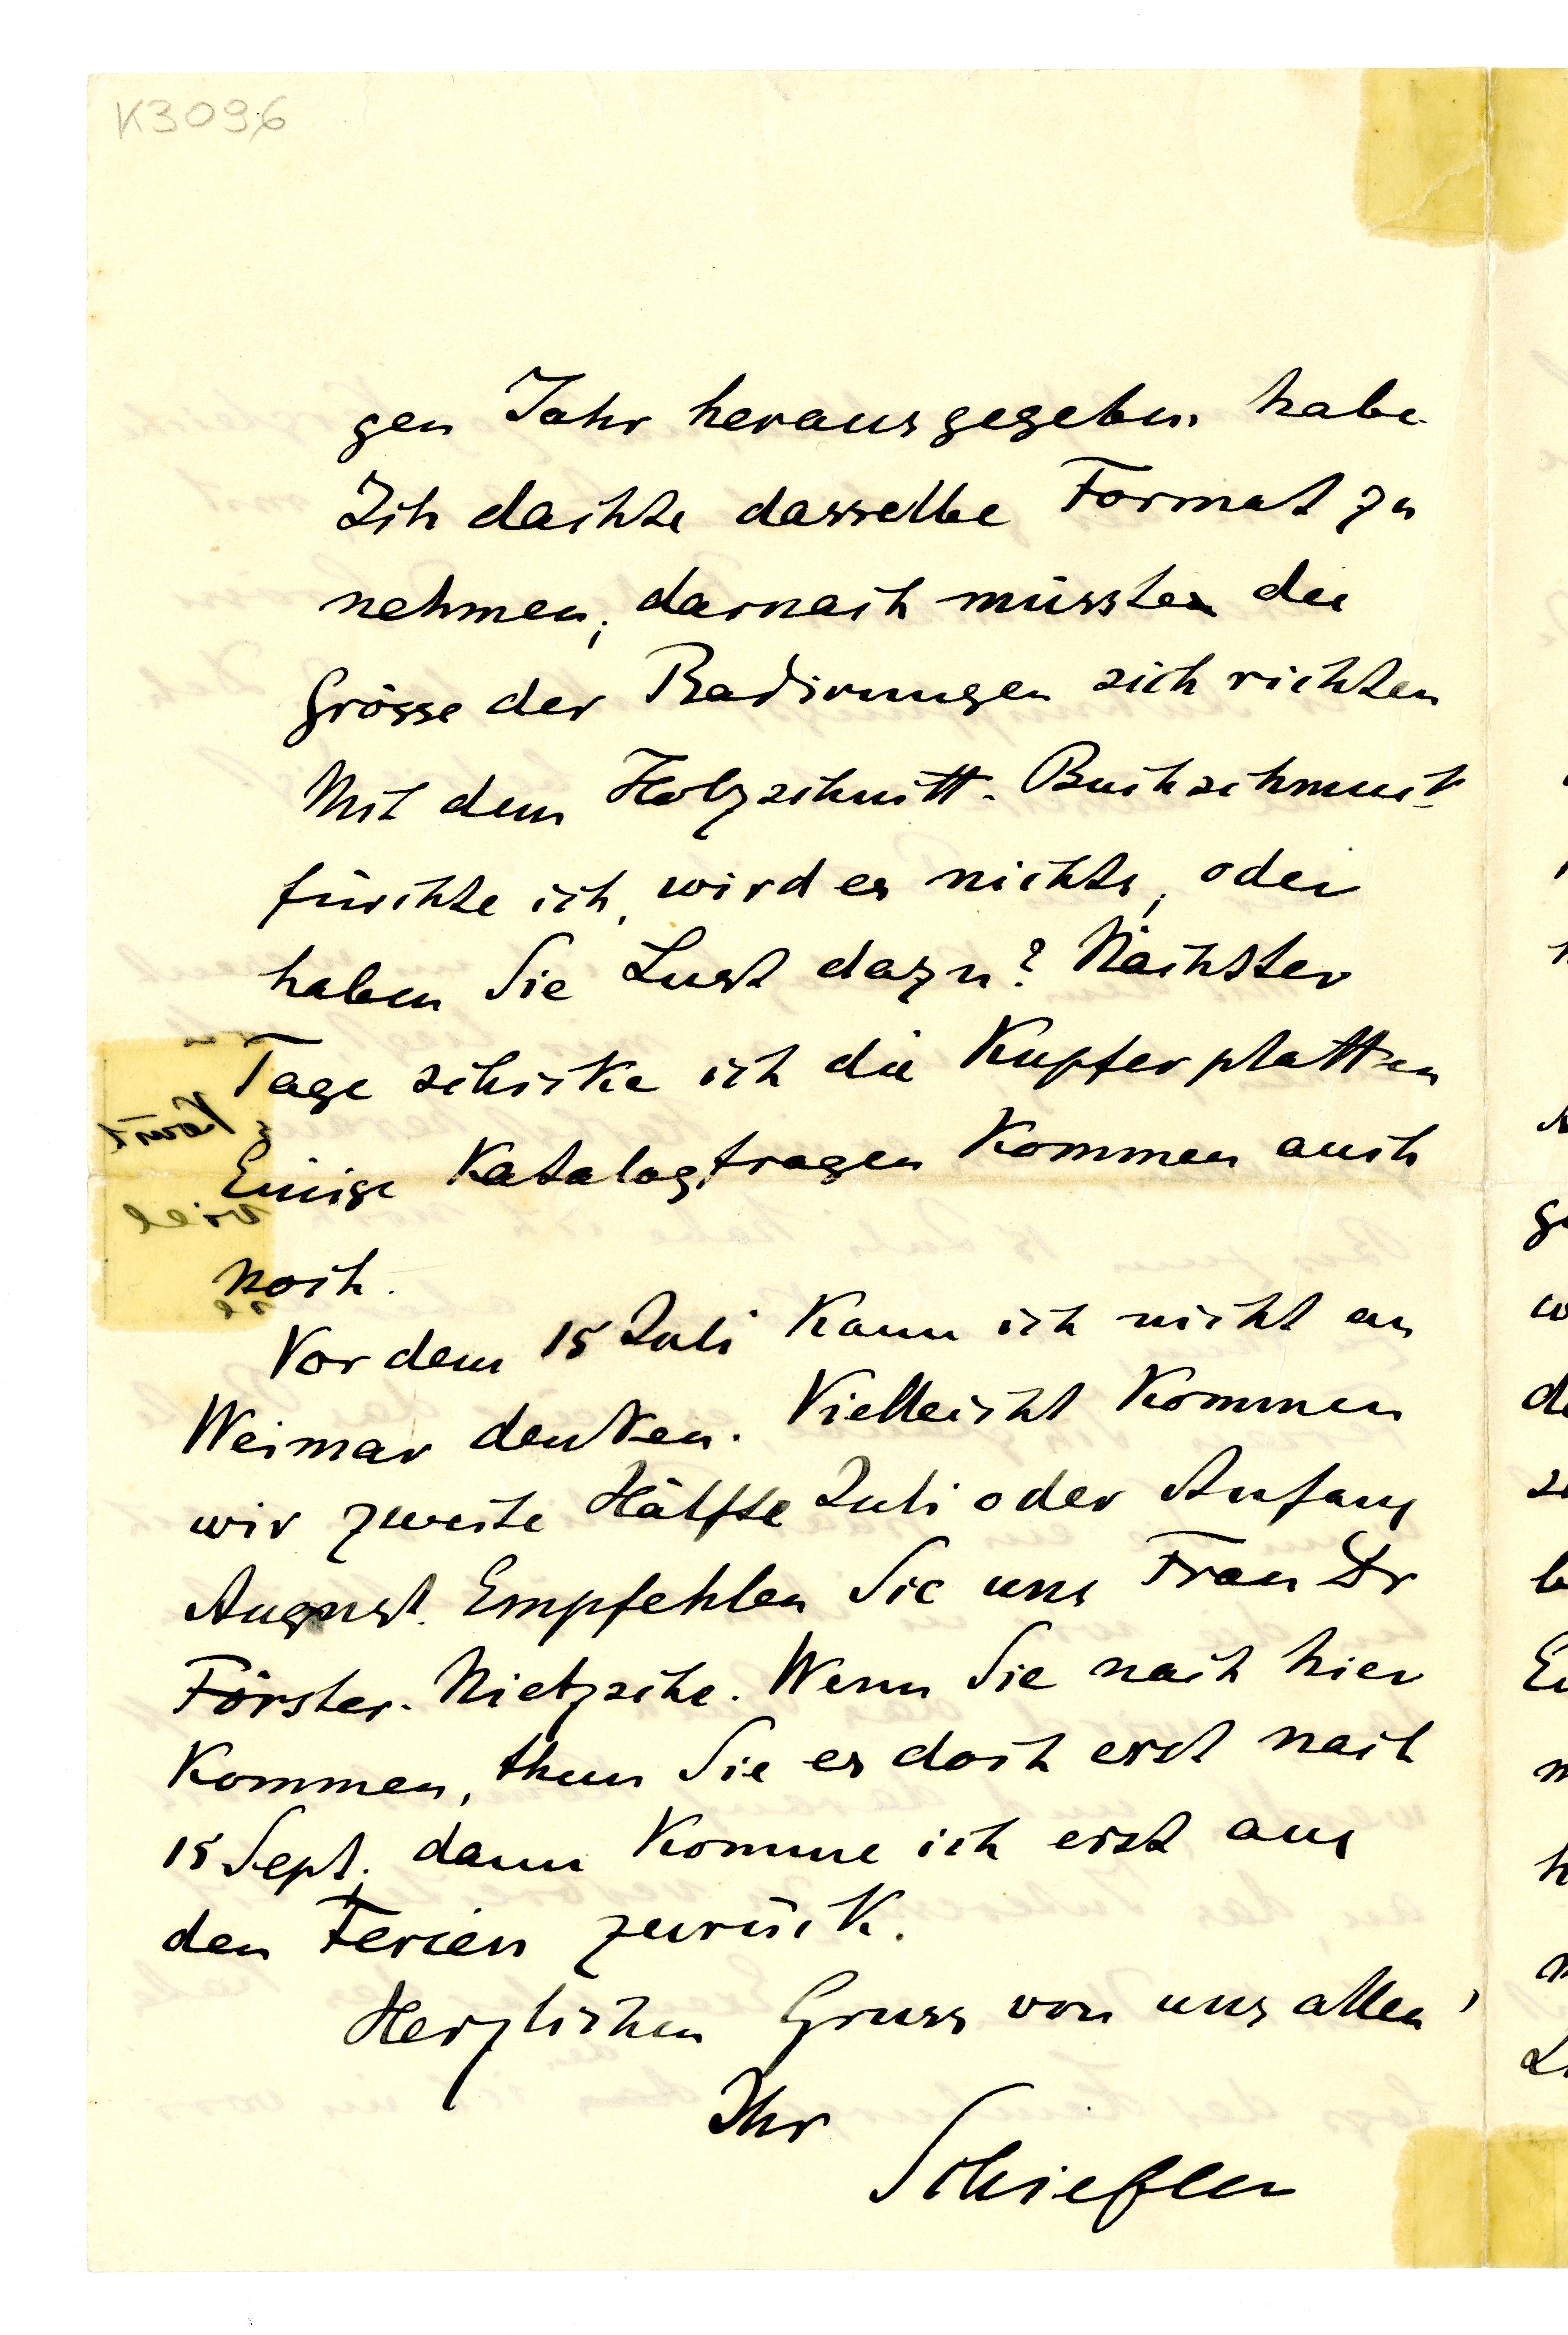 K3096
gen Jahr herausgegeben habe.
Ich dachte dasselbe Format zu
nehmen; darnach müsste die
Grösse der Radirungen sich richten
Mit dem Holzschnitt-Buchschmuck
fürchte ich, wird es nichts, oder
haben Sie Lust dazu? Nächster
Tage schicke ich die Kupferplatten
Einige Katalogfragen kommen auch
noch.
Vor dem 15 Juli kann ich nicht an
Weimar denken. Vielleicht kommen
wir zweite Hälfte Juli oder Anfang
August. Empfehlen Sie uns Frau Dr
Förster-Nietzsche. Wenn Sie nach hier
kommen, thun Sie es doch erst nach
15 Sept; dann komme ich erst aus
den Ferien zurück.
Herzlichen Gruss von uns allen
Ihr
Schiefler